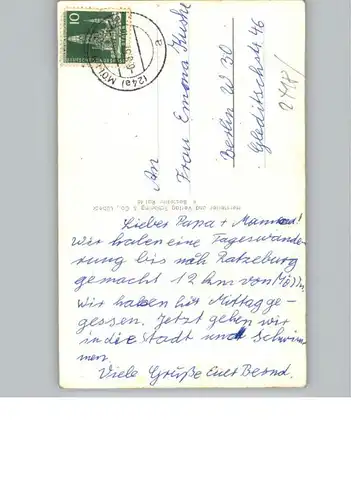 10
(24a) MÖLLN
a
An
Frau Emona Kuske
Berlin W 30
Gleditschstr 46
Hersteller und Verlag Schöning & Co., Lübeck
Lieber Papa + Mama!
Wir haben eine Tageswande-
rung bis nach Ratzeburg
gemacht 12 km von Mölln.
Wir haben hier Mittag ge-
gessen. Jetzt gehen wir
in die Stadt und schwim
men.
Viele Grüße Euer Bernd.